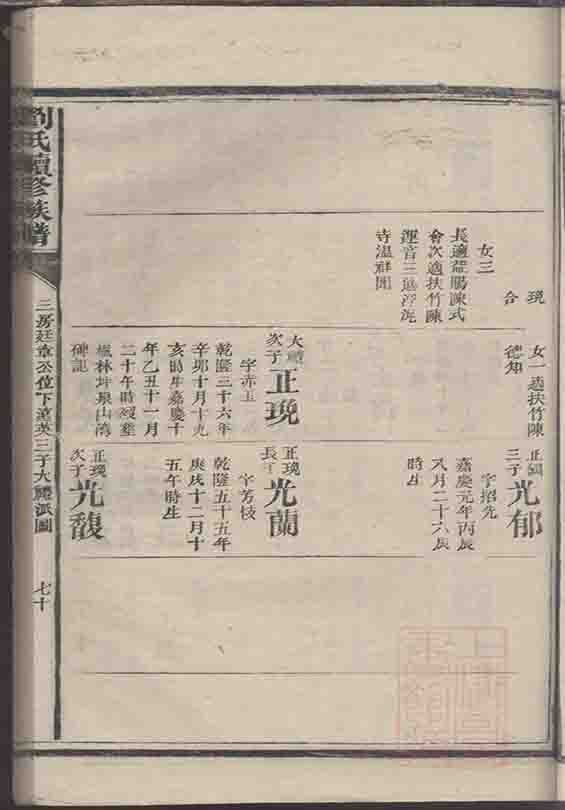 劉氏續修族譜
三房廷章公位下
三子大
派圖
七十
現
合
女三
長適益陽陳式
會次適扶竹陳
運音三適浮泥
寺溫祥開
女一適扶竹陳
德知
大
次子
正琬
字赤玉
乾隆三十六年
辛卯十月十九
亥時生嘉慶十
年乙丑十一月
二十午時歿葬
楓林坪泉山灣
碑記
三子
光郁
字招先
嘉慶元年丙辰
八月二十六辰
時生
正琬
長子
光蘭
字芳枝
乾隆五十五年
庚戌十二月十
五午時生
正琬
次子
光馥